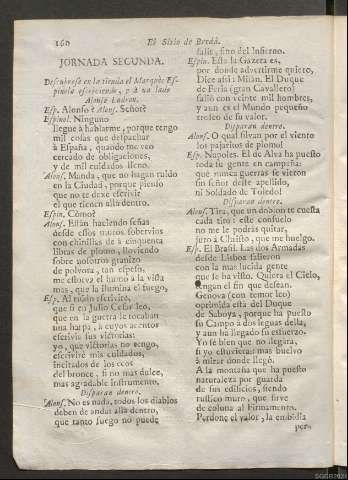 160
El Sitio de Bredà.
JORNADA SEGUNDA.
Descubrese en la tienda el Marquès Es-
pinola escriviendo, y à un lado
Alonso Ladron.
Esp. Alonso? Alons. Señor?
Espinol. Ninguno
llegue à hablarme, porque tengo
mil cosas que despachar
à España, quando me veo
cercado de obligaciones,
y de mil cuidados lleno.
Alons. Manda, que no hagan ruido
en la Ciudad, porque pienso
que no te dexe escrivir
el que tienen allà dentro.
Espin. Còmo?
Alons. Estàn haciendo señas
desde essos muros sobervios
con chinillas de à cinquenta
libras de plomo, lloviendo
sobre nosotros granizo
de polvora, tan espesso,
me estorva el humo à la vista
mas, que la ilumina el fuego,
Esp. Al mismo escrivirè,
que si en Julio Cesar leo,
que en la guerra le tocaban
una harpa, à cuyos acentos
escrivia sus victorias:
yo, que victorias no tengo,
escrivirè mis cuidados,
incitados de los ecos
del bronce, si no mas dulce,
mas agradable instrumento.
Disparan dentro.
Alons. No es nada, todos los diablos
deben de andar allà dentro,
que tanto fuego no puede
salir, sino del Infierno.
Espin. Esta la Gazeta es,
por donde advertirme quiero,
Dice assi: Milàn. El Duque
de Feria (gran Cavallero)
saliò con veinte mil hombres,
y aun es el Mundo pequeño
trofeo de su valor.
Disparan dentro.
Alons. O qual silvan por el viento
los pajarlos de plomo!
Esp. Napoles. El de Alva ha puesto
toda su gente en campaña:
què nunca guerras se vieron
sin señor deste apellido,
ni Soldado de Toledo!
Disparan dentro.
Alons. Tira, que un doblon te cuesta
cada tiro: este consuelo
no me le podràs quitar,
juro à Christo, que me huelgo.
Es. El Brasil. Las dos Armadas
desde Lisboa salieron
con la mas lucida gente
que se ha visto. Quiera el Cielo,
tengan el fin que desean.
Genova (con temor leo)
oprimida està del Duque
de Saboya, porque ha puesto
su Campo à dos leguas della,
y aun ha llegado su esfuerzo.
Yo sè bien que no llegàra,
si yo estuviera: mas buelvo
à mirar donde llegò.
A la montaña que ha puesto
naturaleza por guarda
de sus edificios, siendo
rustico muro, que sirve
de coluna al Firmamento.
Perdone el valor, la embidia
per-